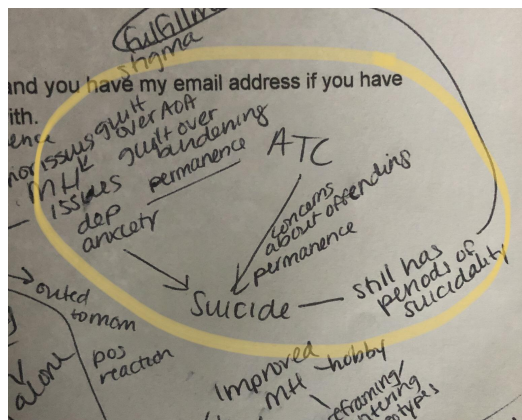 fulfillm
stigma
and you have my email address if you have
ith.
ence
guilt
over AOA
issues
guilt over
burdening
MH
issues
permanence
dep
anxiety
ATC
concerns
about offending
permanence
Suicide — still has
periods of
suicidality
outed
to mom
pos
reaction
alone
Improved
MH
hobby
reframing/